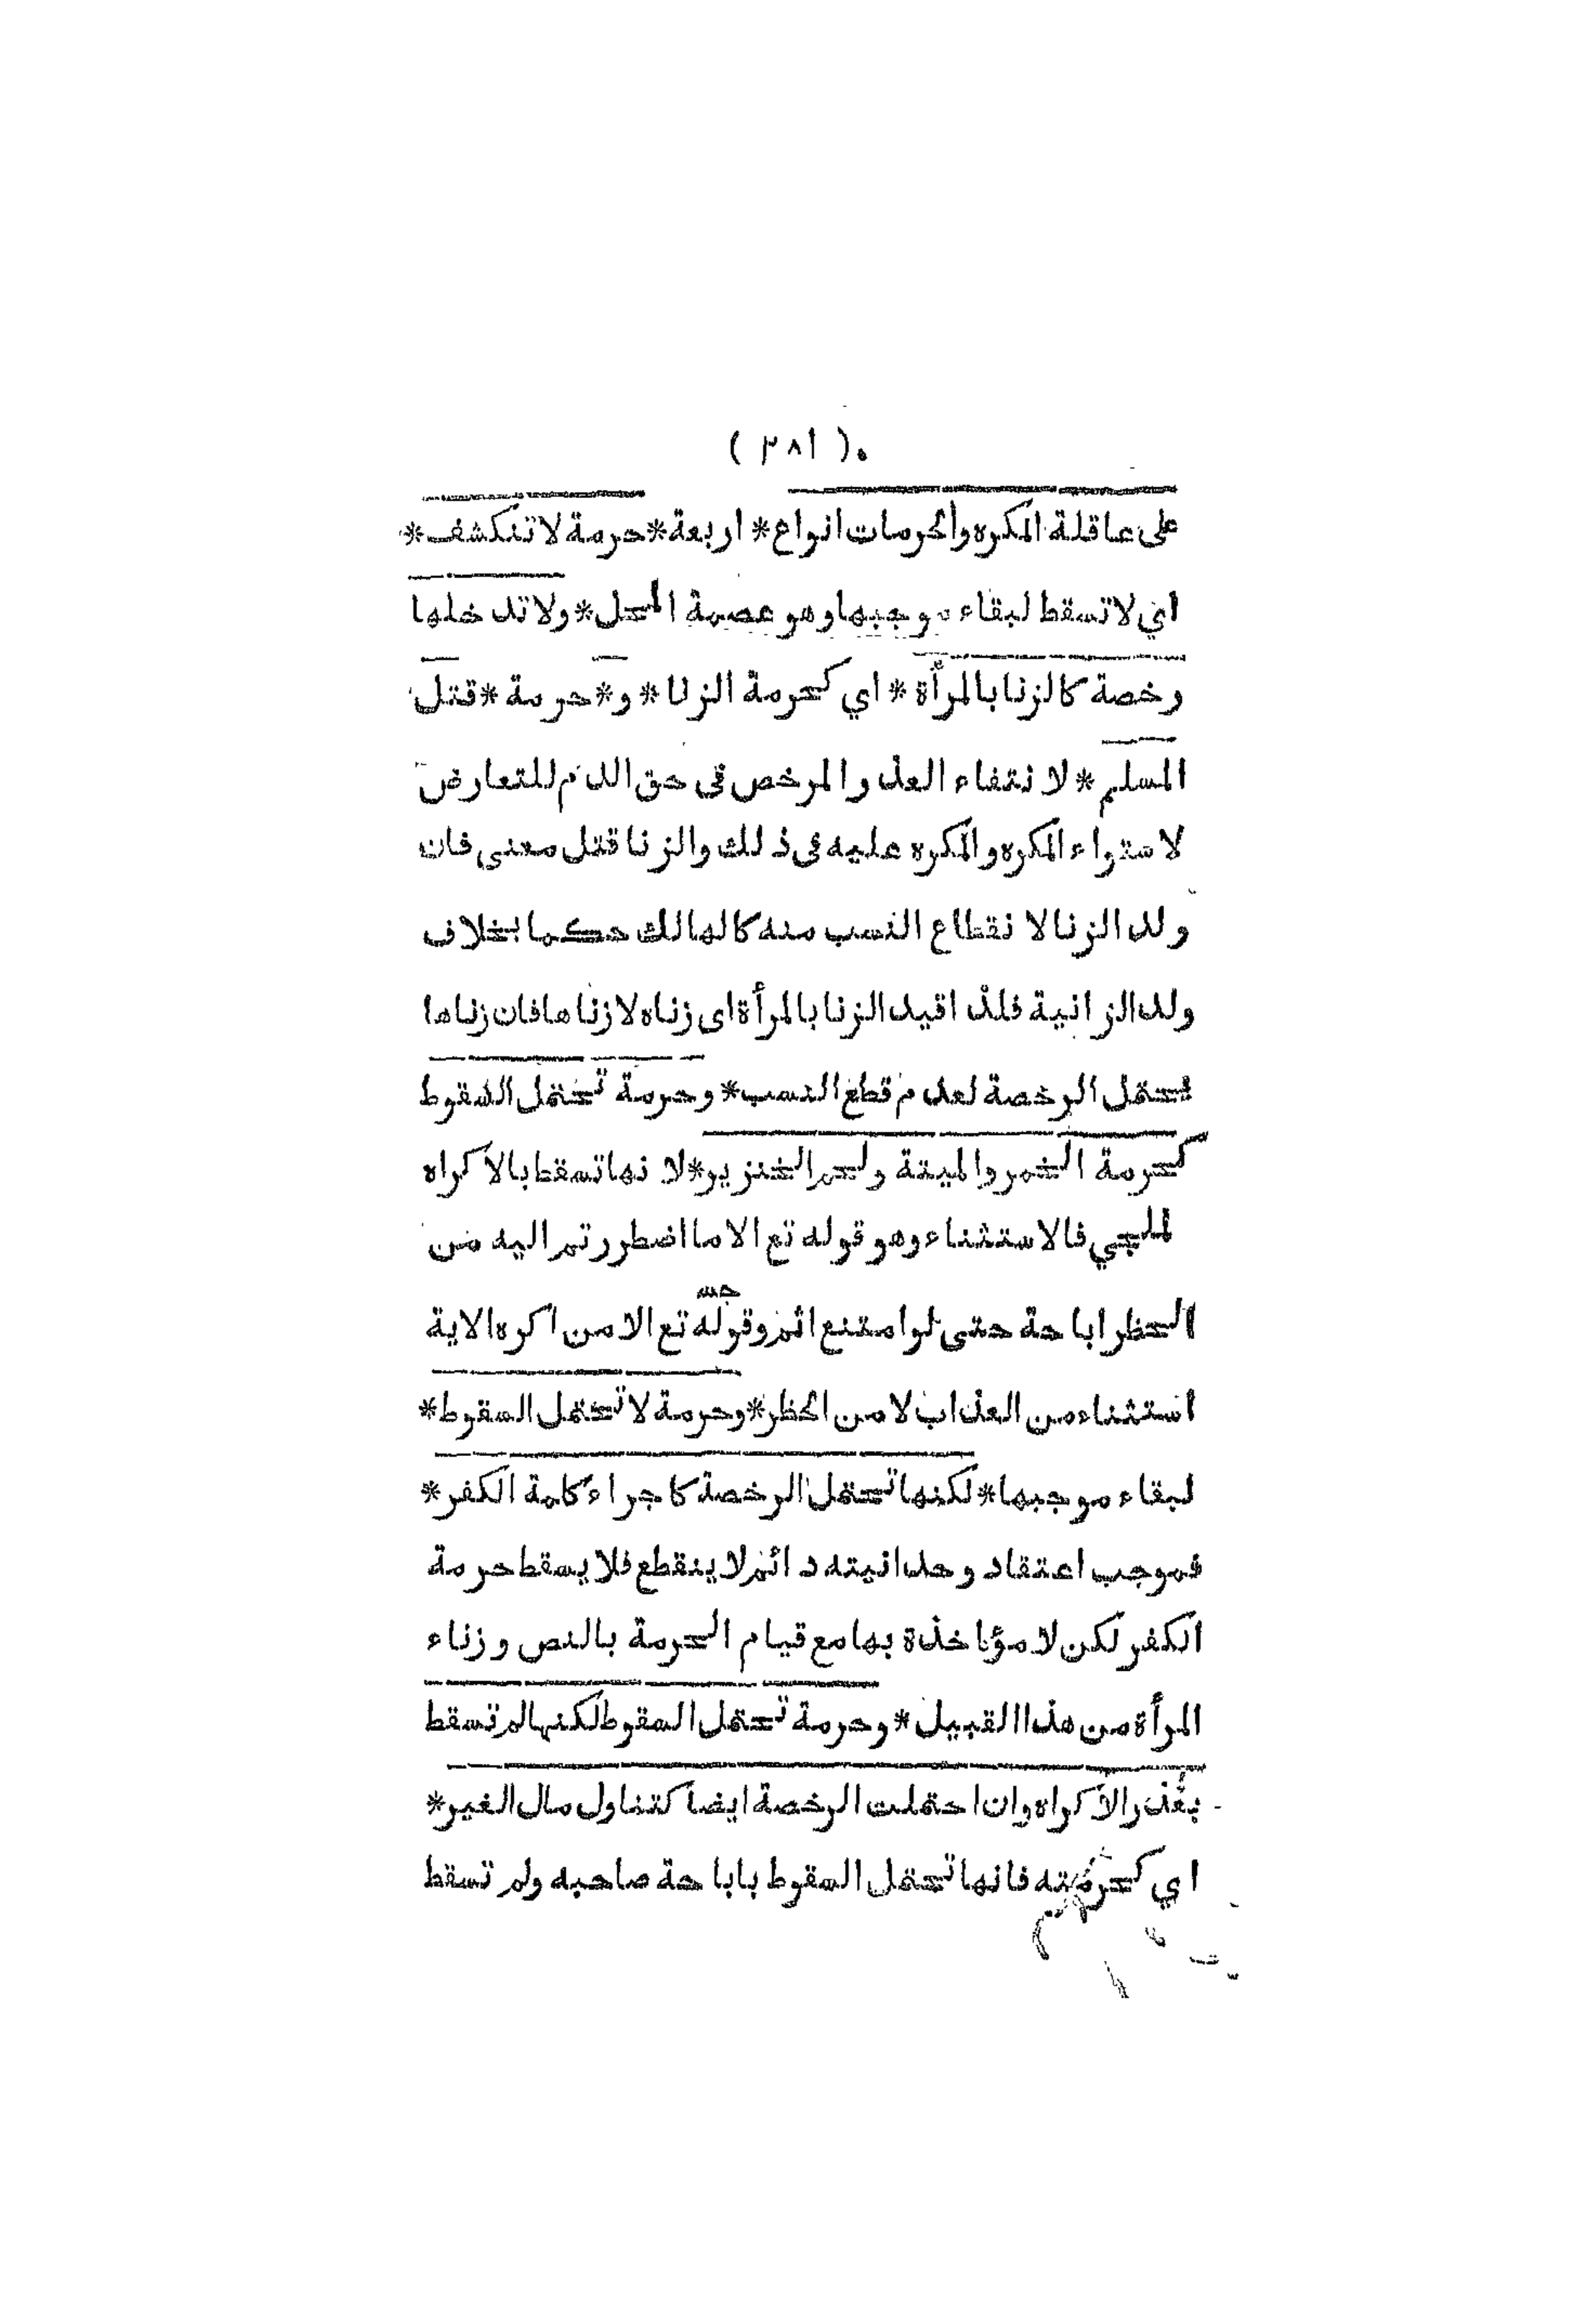 ( ٣٨١ )
على عاقلة المكره والحرمات انواع * اربعة * حرمة لا تنكشف *
اي لا تسقط لبقاء موجبها وهو عصمة المحل * ولا تدخلها
رخصة كالزنا بالمرأة * اي كحرمة الزنا * و * حرمة * قتل
المسلم * لانتفاء العذر المرخص في حق الدم للتعارض
لاستواء المكره والمكره عليه في ذلك والزنا قتل معنى فان
ولد الزنا لانقطاع النسب منه كالهالك حكما بخلاف
ولد الزانية فلذا قيد الزنا بالمرأة اى زناه لا زناها فان زناها
تحتمل الرخصة لعدم قطع النسب * وحرمة تحتمل السقوط
كحرمة الخمر والميتة ولحم الخنزير * لانها تسقط بالاكراه
الملجي فالاستثناء وهو قوله تع الا ما اضطررتم اليه من
الحظر اباحة حتى لو امتنع اثم وقوله تع الا من اكره الاية
استثناء من العذاب لا من الحظر * وحرمة لا تحتمل السقوط *
لبقاء موجبها * لكنها تحتمل الرخصة كاجراء كلمة الكفر *
فموجب اعتقاد وحدانيته دائم لا ينقطع فلا يسقط حرمة
الكفر لكن لا مؤاخذة بها مع قيام الحرمة بالنص وزناء
المرأة من هذا القبيل * وحرمة تحتمل السقوط لكنها لم تسقط
بعذر الاكراه وان احتملت الرخصة ايضا كتناول مال الغير *
اي كحرمته فانها تحتمل السقوط باباحة صاحبه ولم تسقط